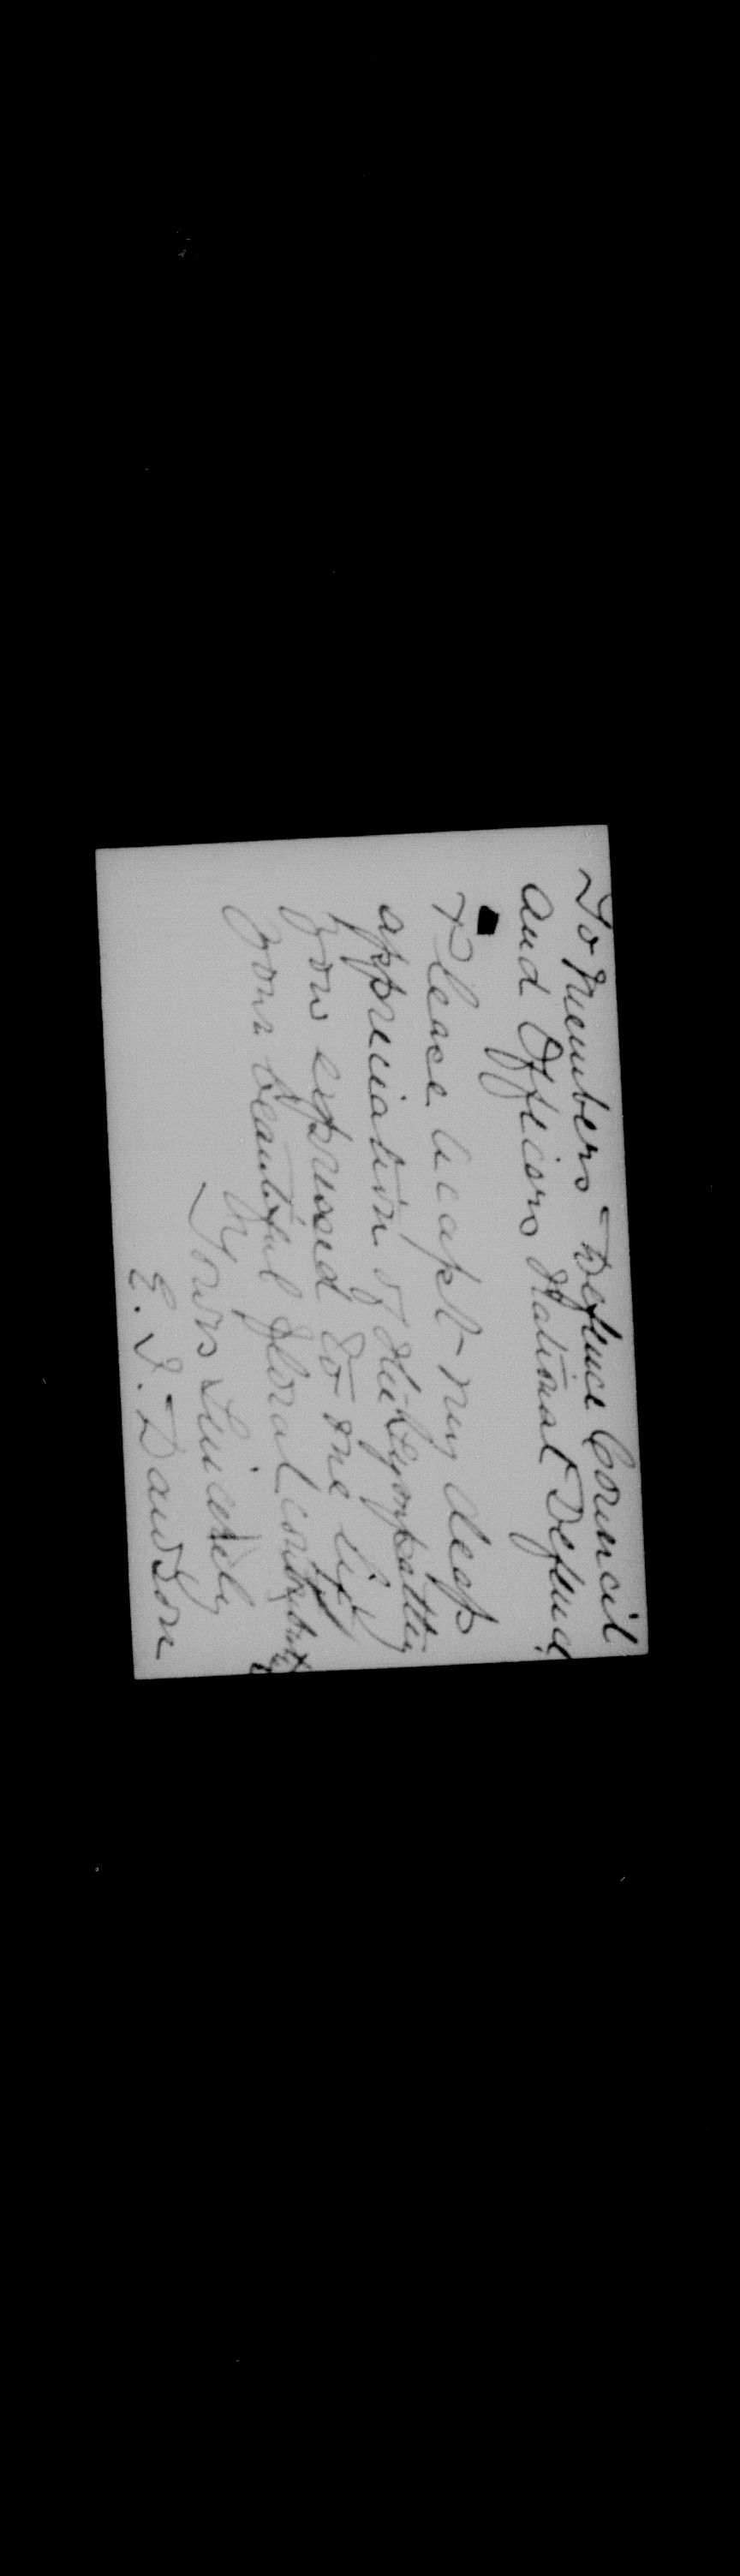 To Members Defence Council
and Officers National Defence
Please Accept my deep
appreciation of the sympathy
you expressed to me by
your beautiful floral contribution
Yours Sincerely
E. I. Dawson